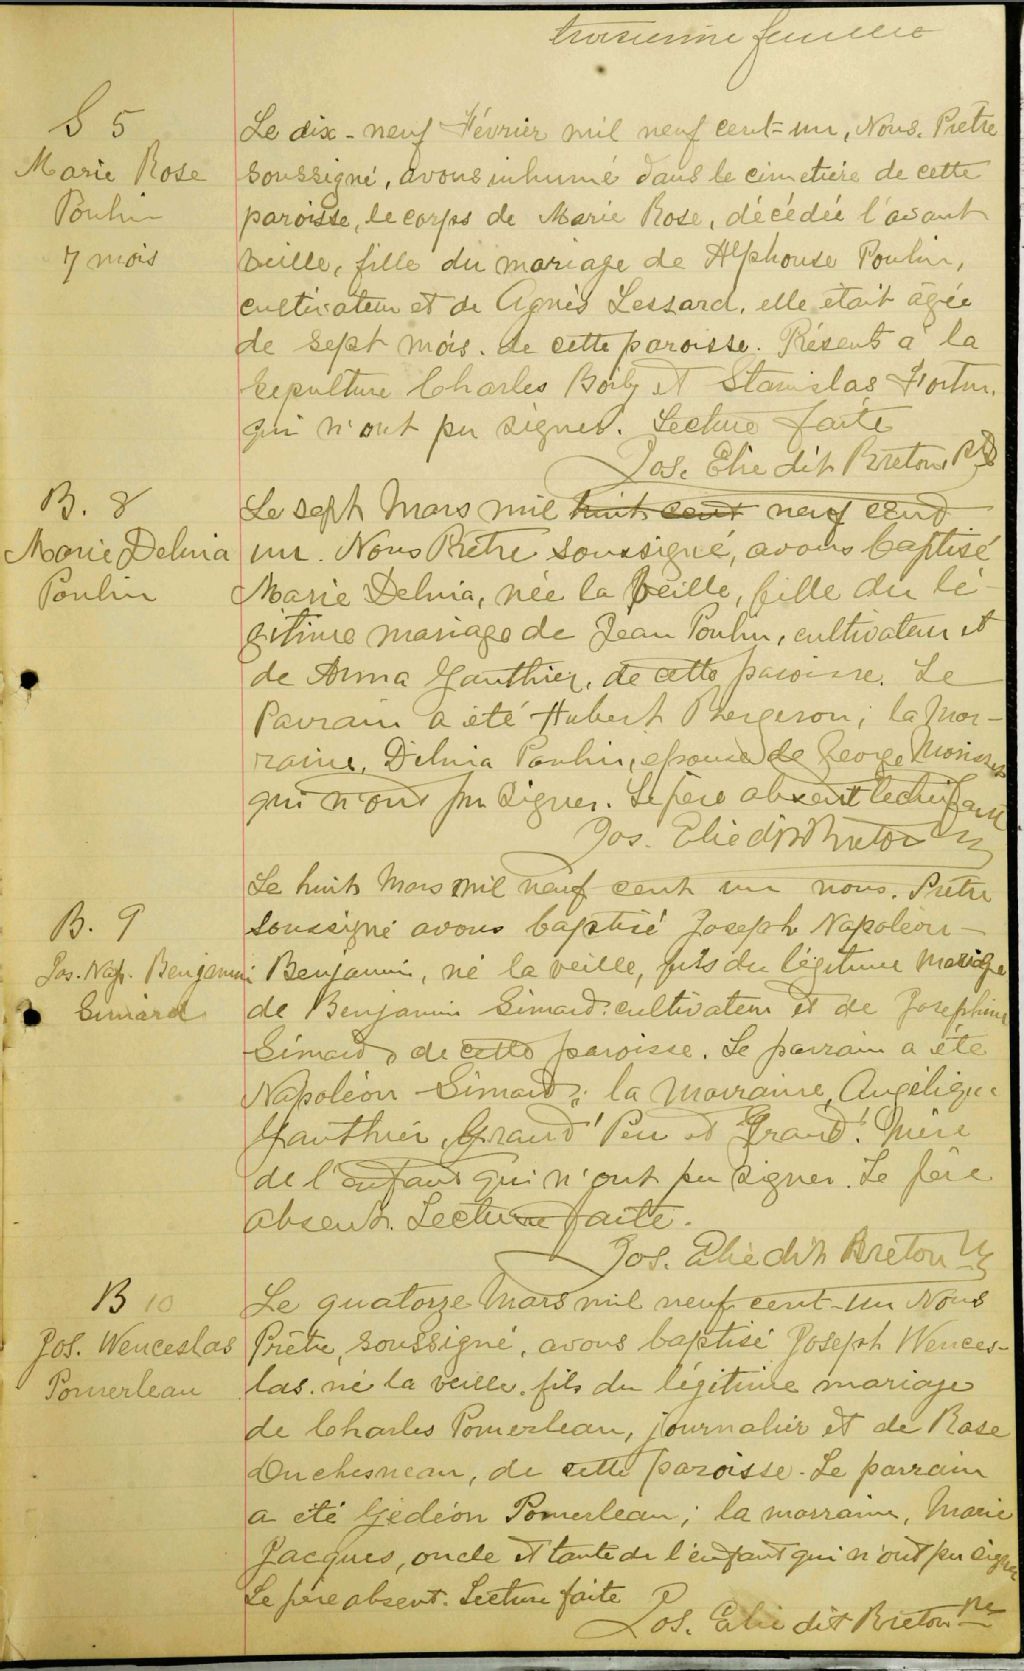 troisième feuille
S 5
Marie Rose
Poulin
7 mois
Le dix-neuf Février mil neuf cent-un, Nous, Prêtre
soussigné, avons inhumé dans le cimetière de cette
paroisse, le corps de Marie Rose, décédée l'avant
veille, fille du mariage de Alphonse Poulin,
cultivateur et de Agnès Lessard, elle était âgée
de sept mois. de cette paroisse. Présents à la
sépulture Charles Boily et Stanislas Fortin,
qui n'ont pu signer. Lecture faite
Jos. Elie dit Breton Ptre
B. 8
Marie Delvia
Poulin
Le sept Mars mil huit cent neuf cent
un. Nous Prêtre soussigné, avons baptisé
Marie Delvia, née la veille, fille du lé-
gitime mariage de Jean Poulin, cultivateur et
de Anna Gauthier, de cette paroisse. Le
Parrain a été Hubert Bergeron; la Mar-
raine, Delvia Poulin, épouse de George Morisset
qui n'ont pu signer. Le père absent lecture faite
Jos. Elie dit Breton
B. 9
Jos. Nap. Benjamin
Simard
Le huit Mars mil neuf cent un nous, Prêtre
soussigné avons baptisé Joseph Napoléon-
Benjamin, né la veille, fils du légitime mariage
de Benjamin Simard cultivateur et de Josephine
Simard, de cette paroisse. Le parrain a été
Napoléon Simard; la Marraine, Angélique
Gauthier, Grand' Père et Grand' Mère
de l'enfant qui n'ont pu signer. Le père
absent. Lecture faite.
Jos. Elie dit Breton
B 10
Jos. Wenceslas
Pomerleau
Le quatorze Mars mil neuf cent-un Nous
Prêtre, soussigné, avons baptisé Joseph Wences-
las. né la veille. fils du légitime mariage
de Charles Pomerleau, journalier et de Rose
Duchesneau, de cette paroisse. Le parrain
a été Gédéon Pomerleau; la marraine, Marie
Jacques, oncle et tante de l'enfant qui n'ont pu signer
Le père absent. Lecture faite
Jos. Elie dit Breton Ptre